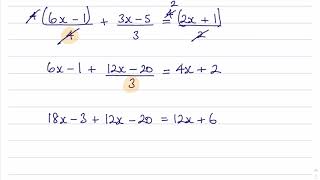 4(6x-1)/4 + (3x-5)/3 = 4²(2x+1)/2
6x-1 + (12x-20)/3 = 4x+2
18x-3+12x-20 = 12x+6